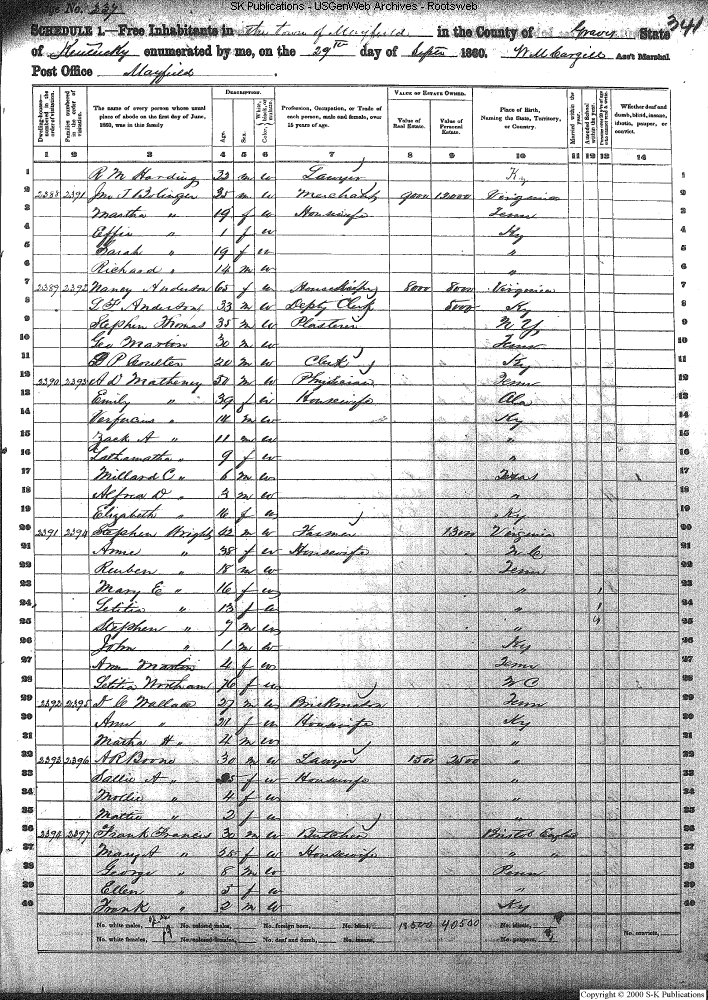 SK Publications - USGenWeb Archives - Rootsweb
Page No. 339
341
SCHEDULE 1.—Free Inhabitants in the town of Mayfield in the County of Graves State
of Kentucky enumerated by me, on the 29th day of Septr 1860. W M Cargill Ass't Marshal
Post Office Mayfield
Dwelling-houses—numbered in the order of visitation.
Families numbered in the order of visitation.
The name of every person whose usual place of abode on the first day of June, 1860, was in this family
DESCRIPTION.
Age. Sex. Color,
Profession, Occupation, or Trade of each person, male and female, over 15 years of age.
VALUE OF ESTATE OWNED.
Value of Real Estate. Value of Personal Estate.
Place of Birth, Naming the State, Territory, or Country.
Married within the year.
Attended School within the year.
Whether deaf and dumb, blind, insane, idiotic, pauper, or convict.
1 2 3 4 5 6 7 8 9 10 11 12 13 14
1 R M Harding 33 m w Lawyer Ky 1
2 2388 2391 Jno T Bolinger 35 m w Merchant 9000 12000 Virginia 2
3 Martha " 19 f w Housewife Tenn 3
4 Effie " 1 f w Ky 4
5 Sarah " 19 f w " 5
6 Richard " 14 m w " 6
7 2389 2392 Nancy Anderson 65 f w 8000 8000 Virginia 7
8 Anderson 33 m w Depty Clerk 5000 Ky 8
9 Stephen Thomas 35 m w Plasterer N Y 9
10 Geo Marton 30 m w Tenn 10
11 Coulter 20 m w Clerk Ky 11
12 2390 2393 A D Matheney 50 m w Physician Tenn 12
13 Emily " 39 f w Housewife Ala 13
14 " 14 m w Ky 14
15 Zack A " 11 m w " 15
16 " 9 f w " 16
17 Millard C " 6 m w Texas 17
18 Alfred D " 3 m w " 18
19 Elizabeth " 16 f w Ky 19
20 2391 2394 Stephen Wright 42 m w Farmer 1300 Virginia 20
21 Anne " 38 f w Housewife N C 21
22 Reuben " 18 m w Tenn 22
23 Mary E " 16 f w " 1 23
24 Letitia " 13 f w " 1 24
25 Stephen " 7 m w " 25
26 John " 1 m w Ky 26
27 Ann Marton 4 f w Tenn 27
28 Letitia Wortham 76 f w N C 28
29 2392 2395 Wallace 27 m w Brickmason Tenn 29
30 Ann " 21 f w Housewife Ky 30
31 Martha H " 4 m w " 31
32 2393 2396 A R Boone 30 m w Lawyer 1500 2500 " 32
33 Sallie A " 25 f w Housewife " 33
34 Mollie " 4 f w " 34
35 Mattie " 2 f w " 35
36 2394 2397 Frank Francis 30 m w Butcher Bristol England 36
37 Mary A " 28 f w Housewife " " 37
38 George " 8 m w Penn 38
39 Ellen " 5 f w " 39
40 Frank " 2 m w Ky 40
No. white males, No. colored males, No. foreign born, No. blind, 18500 40500 No. idiotic,
No. white females, 19 No. colored females, No. deaf and dumb, No. insane, No. paupers, No. convicts,
Copyright © 2000 S-K Publications